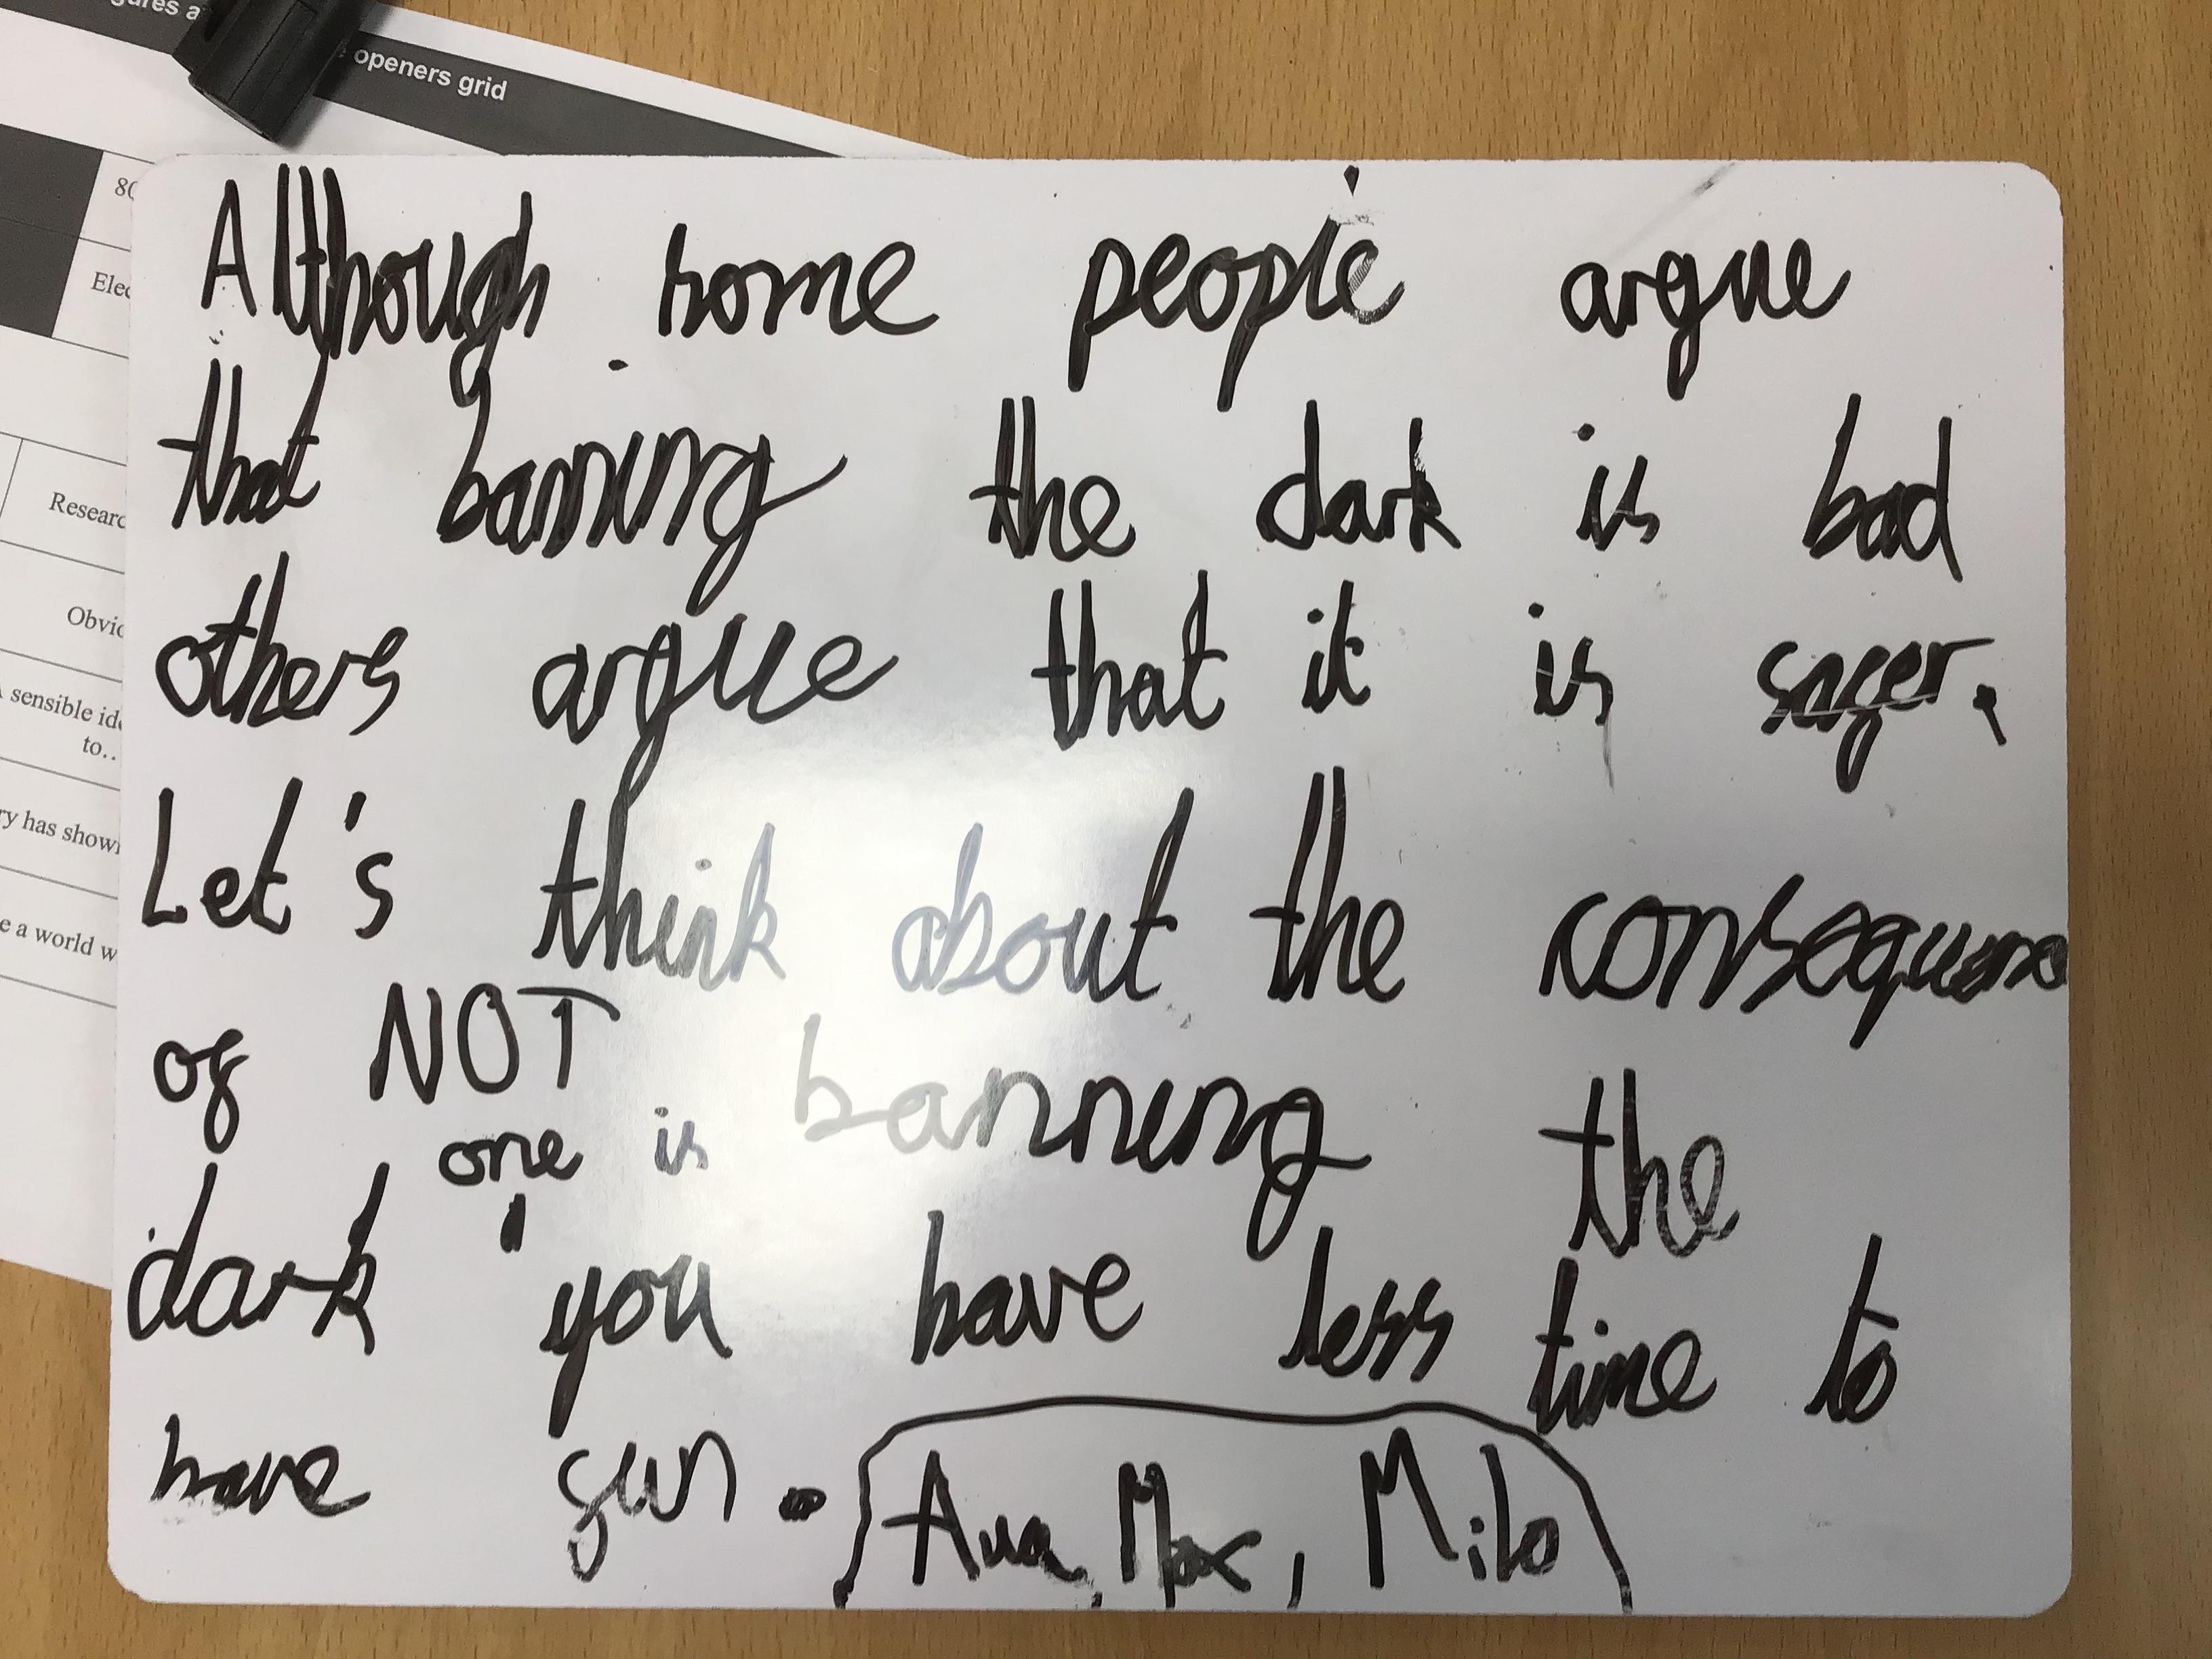 openers grid
80
Researc
Obvio
sensible ide
to..
ry has show
e a world w
Although some people argue
that banning the dark is bad
others argue that it is safer.
Let's think about the consequence
of NOT banning the
one is
dark you have less time to
have fun.
Ava, Max, Milo